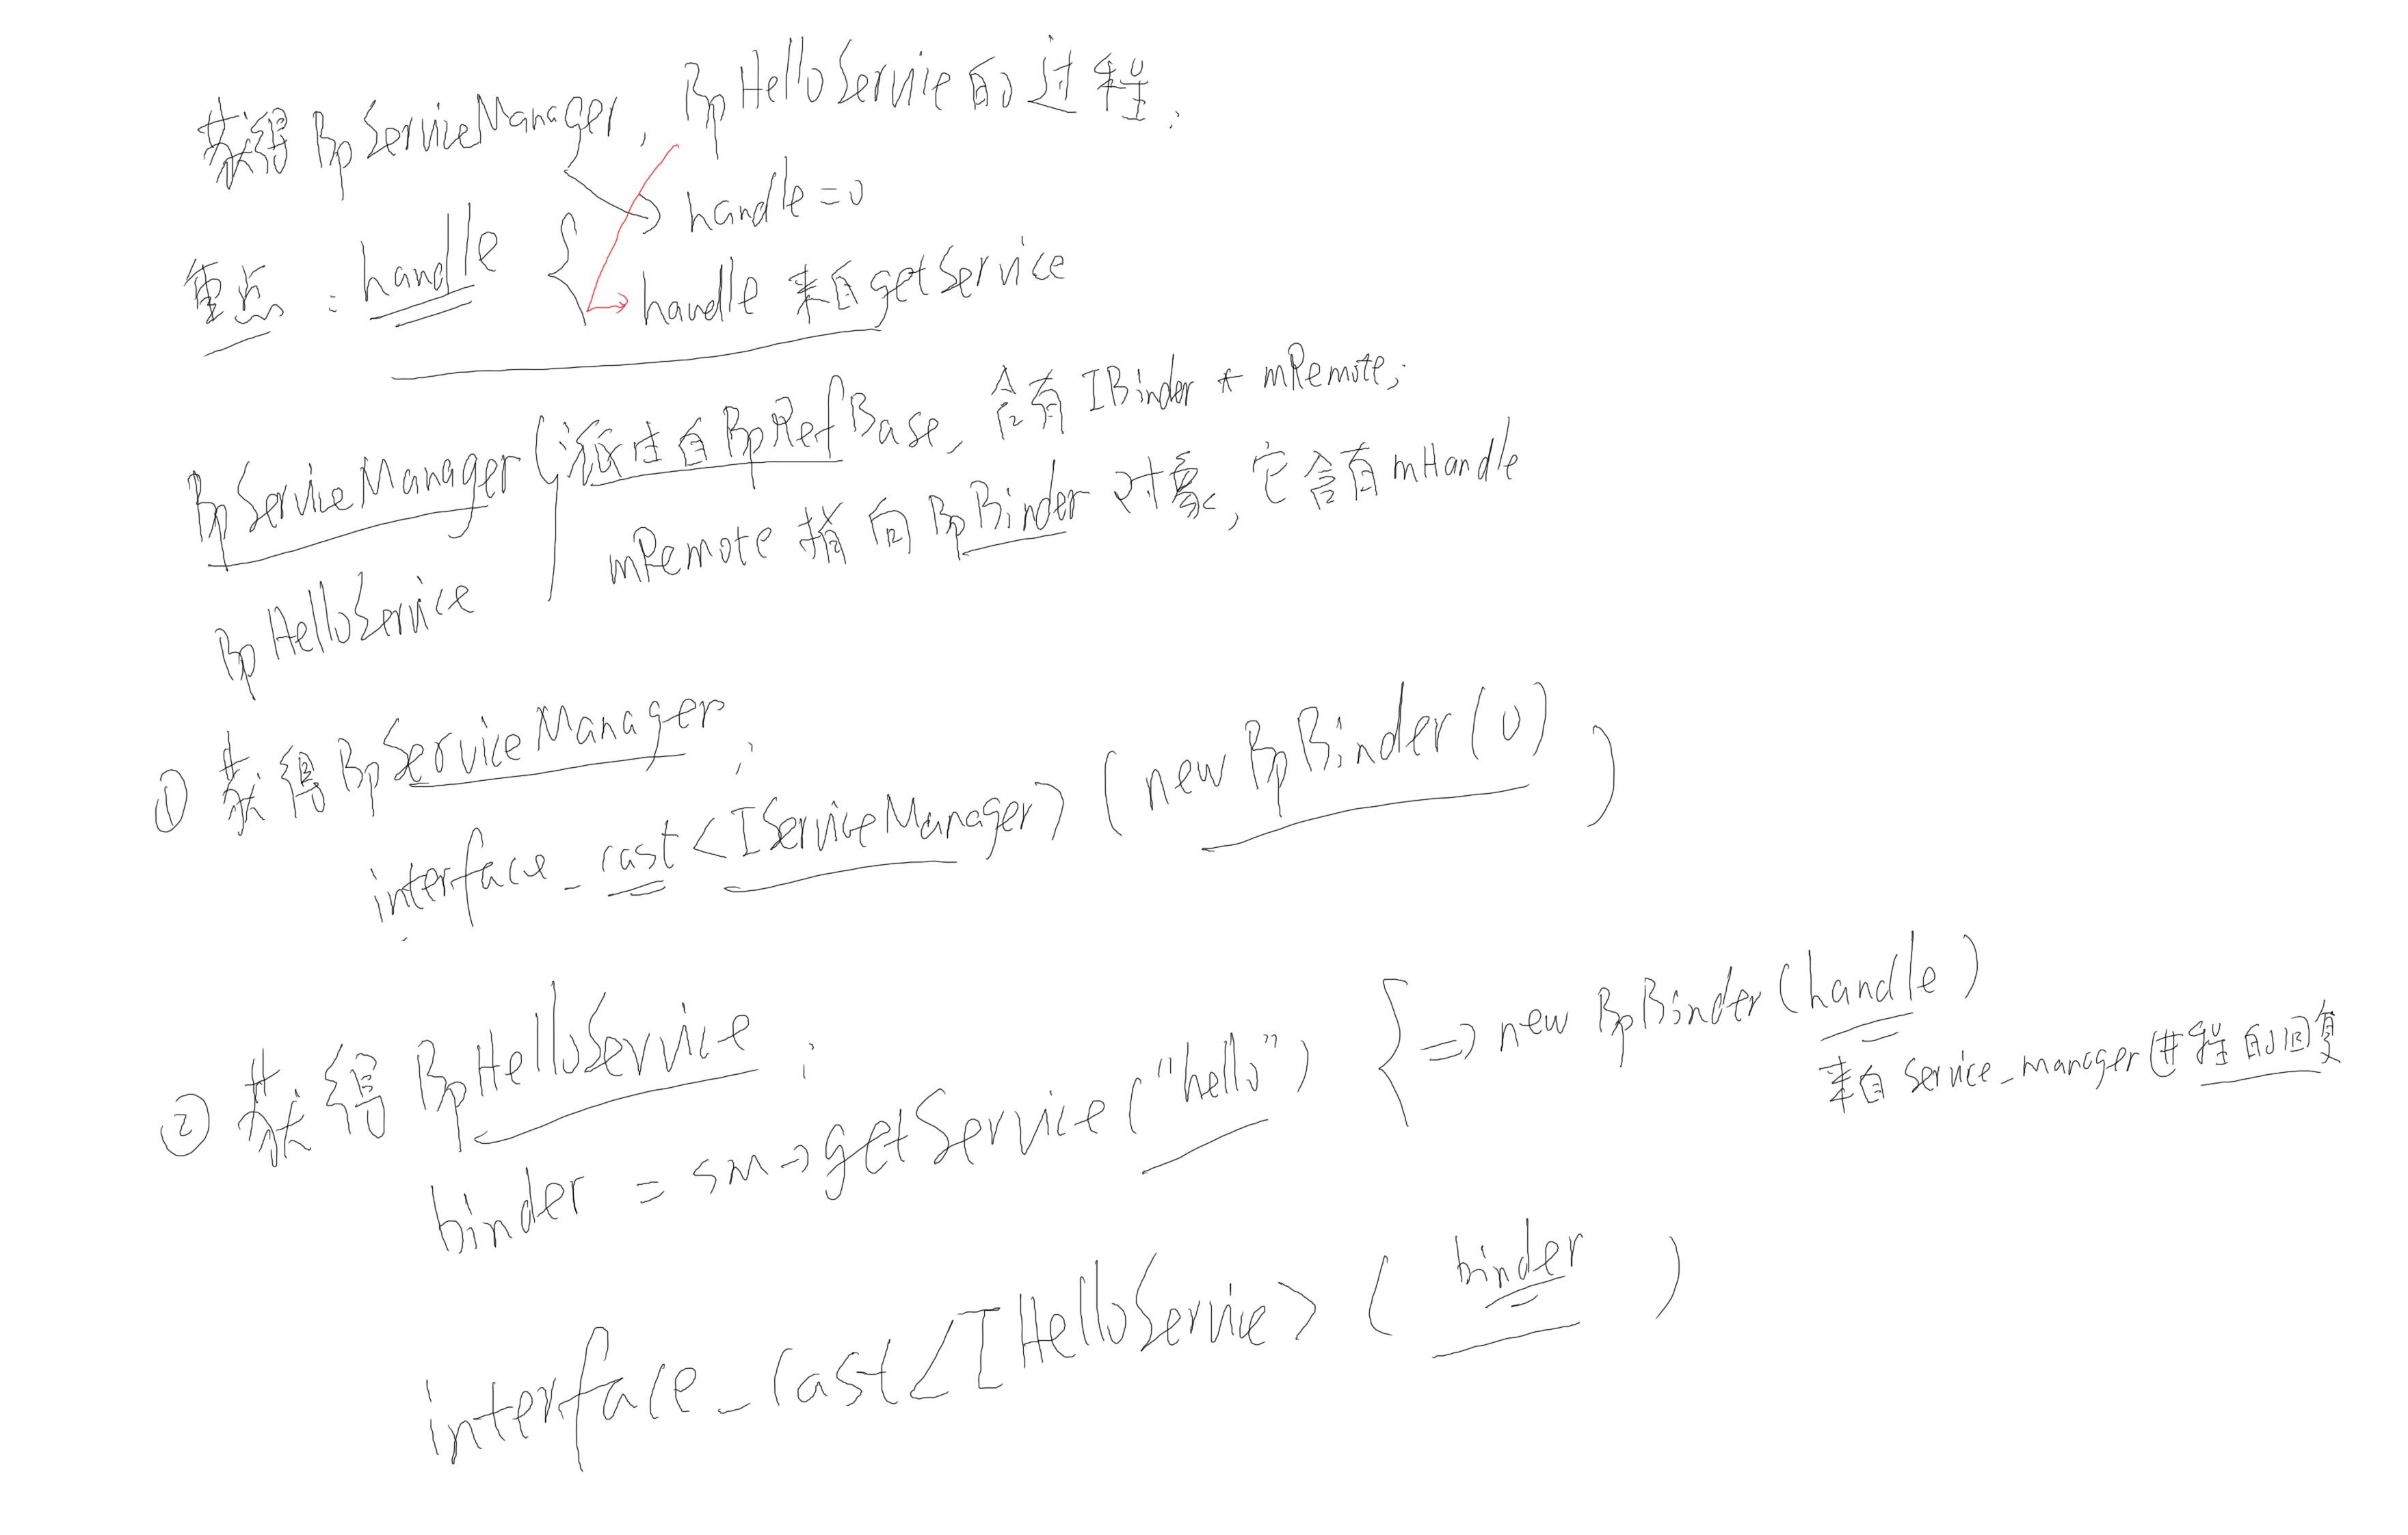 获得BpServiceManager, BpHelloService的过程.
handle=0
重点: handle
handle来自getService
BpServiceManager (派生自BpRefBase, 含有 IBinder * mRemote;
mRemote 指向BpBinder 对象, 它含有mHandle
BpHelloService
① 获得BpServiceManager;
interface_cast<IServiceManager> (new BpBinder(0))
② 获得 BpHelloService :
binder = sm->getService("hello") { => new BpBinder(handle)
来自 service_manager进程的回复
interface_cast<IHelloService> (binder)